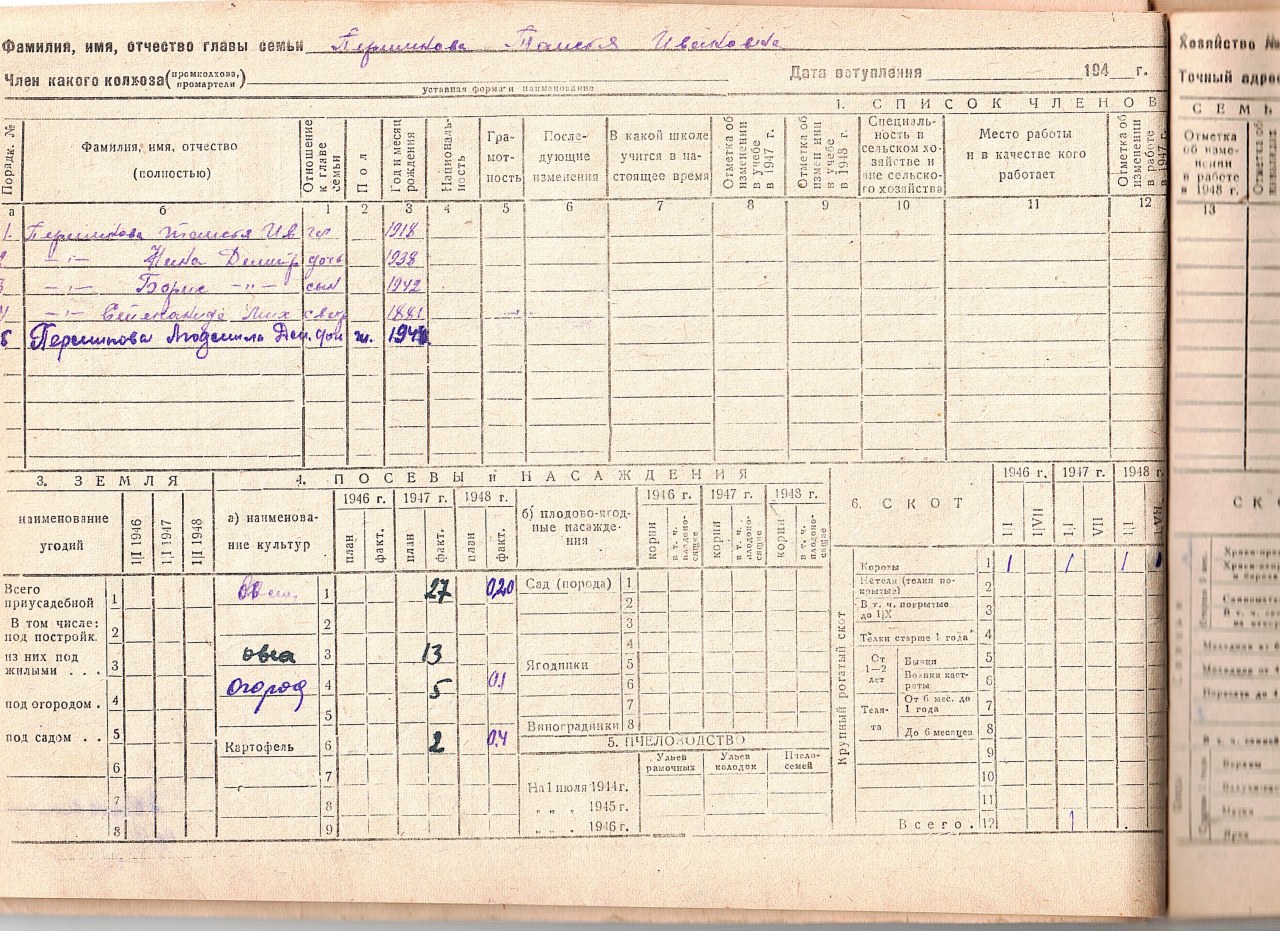 Фамилия, имя, отчество главы семьи Першикова Таисья Ивановна
Член какого колхоза (промколхоза, промартели)
уставная форма и наименование
Дата вступления 194 г.
1. СПИСОК ЧЛЕНОВ
Порядк. №
Фамилия, имя, отчество (полностью)
Отношение к главе семьи
Пол
Год и месяц рождения
Националь-ность
Гра-мот-ность
После-дующие изменения
В какой школе учится в на-стоящее время
Отметка об изменении в учебе в 1947 г.
Отметка об изменении в учебе в 1948 г.
Специаль-ность в сельском хо-зяйстве и вне сельско-го хозяйства
Место работы и в качестве кого работает
Отметка об изменении в работе в 1947 г.
а б 1 2 3 4 5 6 7 8 9 10 11 12
1. Першикова Таисья Ив 1918
2 -"- Нина Дмитр дочь 1938
3 -"- Борис -"- сын 1942
4 -"- Мих свек 1881
5 Першикова Людмила Дм. доч ж.
3. ЗЕМЛЯ
наименование угодий
1|I 1946
1|I 1947
1|I 1948
Всего приусадебной 1
В том числе: под постройк. 2
из них под жилыми . . . 3
под огородом . 4
под садом . . 5
6
7
8
4. ПОСЕВЫ и НАСАЖДЕНИЯ
а) наименова-ние культур
1946 г. 1947 г. 1948 г.
план факт. план факт. план факт.
1 27 0,20
2
овса 3 13
огород 4 5 0,1
5
Картофель 6 2 0,4
7
8
9
б) плодово-ягод-ные насажде-ния
1946 г. 1947 г. 1948 г.
корни в т. ч. плодоно-сящие корни в т. ч. плодоно-сящие корни в т. ч. плодоно-сящие
Сад (порода) 1
2
3
4
Ягодники 5
6
7
Виноградники 8
5. ПЧЕЛОВОДСТВО
Ульев рамочных
Ульев колодок
Пчело-семей
На 1 июля 1944 г.
" " " 1945 г.
" " " 1946 г.
6. СКОТ
1946 г. 1947 г. 1948 г.
1|I 1|VII 1|I VII 1|I 1|VII
Крупный рогатый скот
Коровы 1 1 1 1 1
Нетели (телки по-крытые) 2
В т. ч. покрытые до 1|X 3
Телки старше 1 года 4
От 1—2 лет
Бычки 5
Волики каст-раты 6
Теля-та
От 6 мес. до 1 года 7
До 6 месяцев 8
9
10
11
Всего . 12 1
Хозяйство №
Точный адрес
СЕМЬ
Отметка об изме-нении в работе в 1948 г.
13
СК